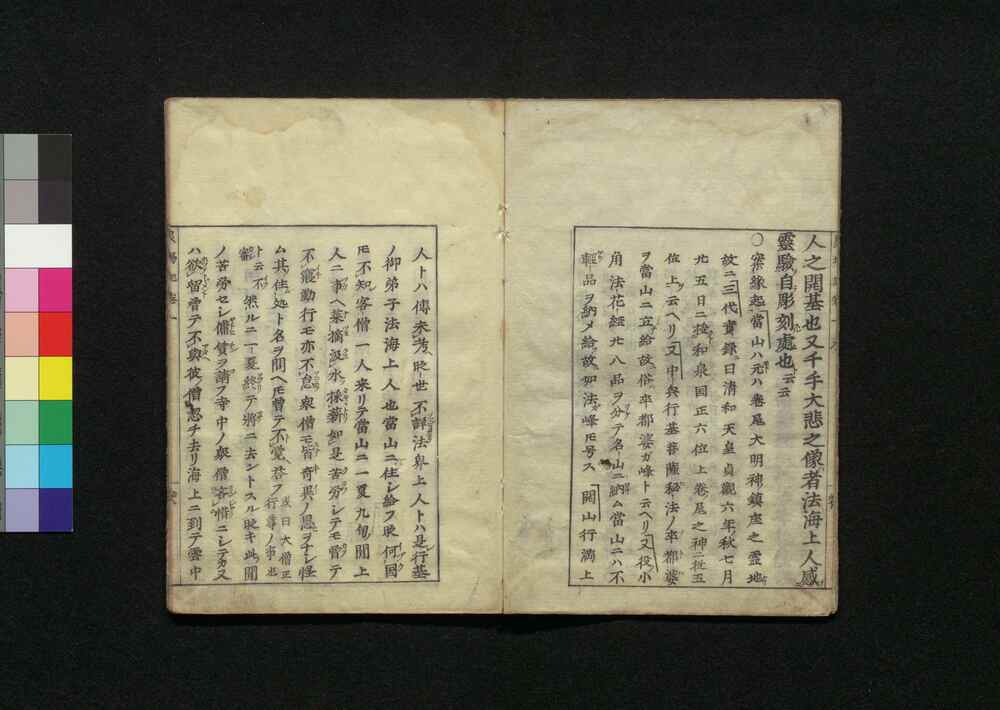 人之開基也又千手大悲之像者法海上人感
靈驗自彫刻處也云云
○案縁起當山ハ元ハ巻尾大明神鎮座之霊地
故ニ三代實録ニ曰清和天皇貞觀六年秋七月
廿五日ニ授和泉国正六位上巻尾之神ニ從五
位上ヲ云ヘリ又中興行基菩薩秘法ノ卒都婆
ヲ當山ニ立給故ニ俗卒都婆ガ峰ト云ヘリ又役小
角法花經廿八品ヲ分テ名山ニ納ム當山ニハ不
輕品ヲ納メ給故ニ如法峰トモ号ス 開山行満上
人トハ傳未考時世不詳法皐上人トハ是行基
ノ御弟子法海上人也當山ニ住シ給フ時何国
トモ不知客僧一人来リテ當山ニ一夏九旬ノ間上
人ニ事ヘ菓摘汲水採薪如是苦労シテモ曽テ
不寢勤行モ亦不怠衆僧モ皆奇異ノ思ヲナシ怪
ム其住処ト名ヲ問ヘトモ曽テ不堂荅フ 或曰大僧正行尊ノ事也
ト云不審 然ルニ一夏終テ將ニ去ントスル時キ此間
ノ苦労セシ傭賃ヲ請フ寺中ノ衆僧吝惜ニシテカス
ハ欲留曽テ不與彼僧忽チ去リ海上ニ到テ雲中